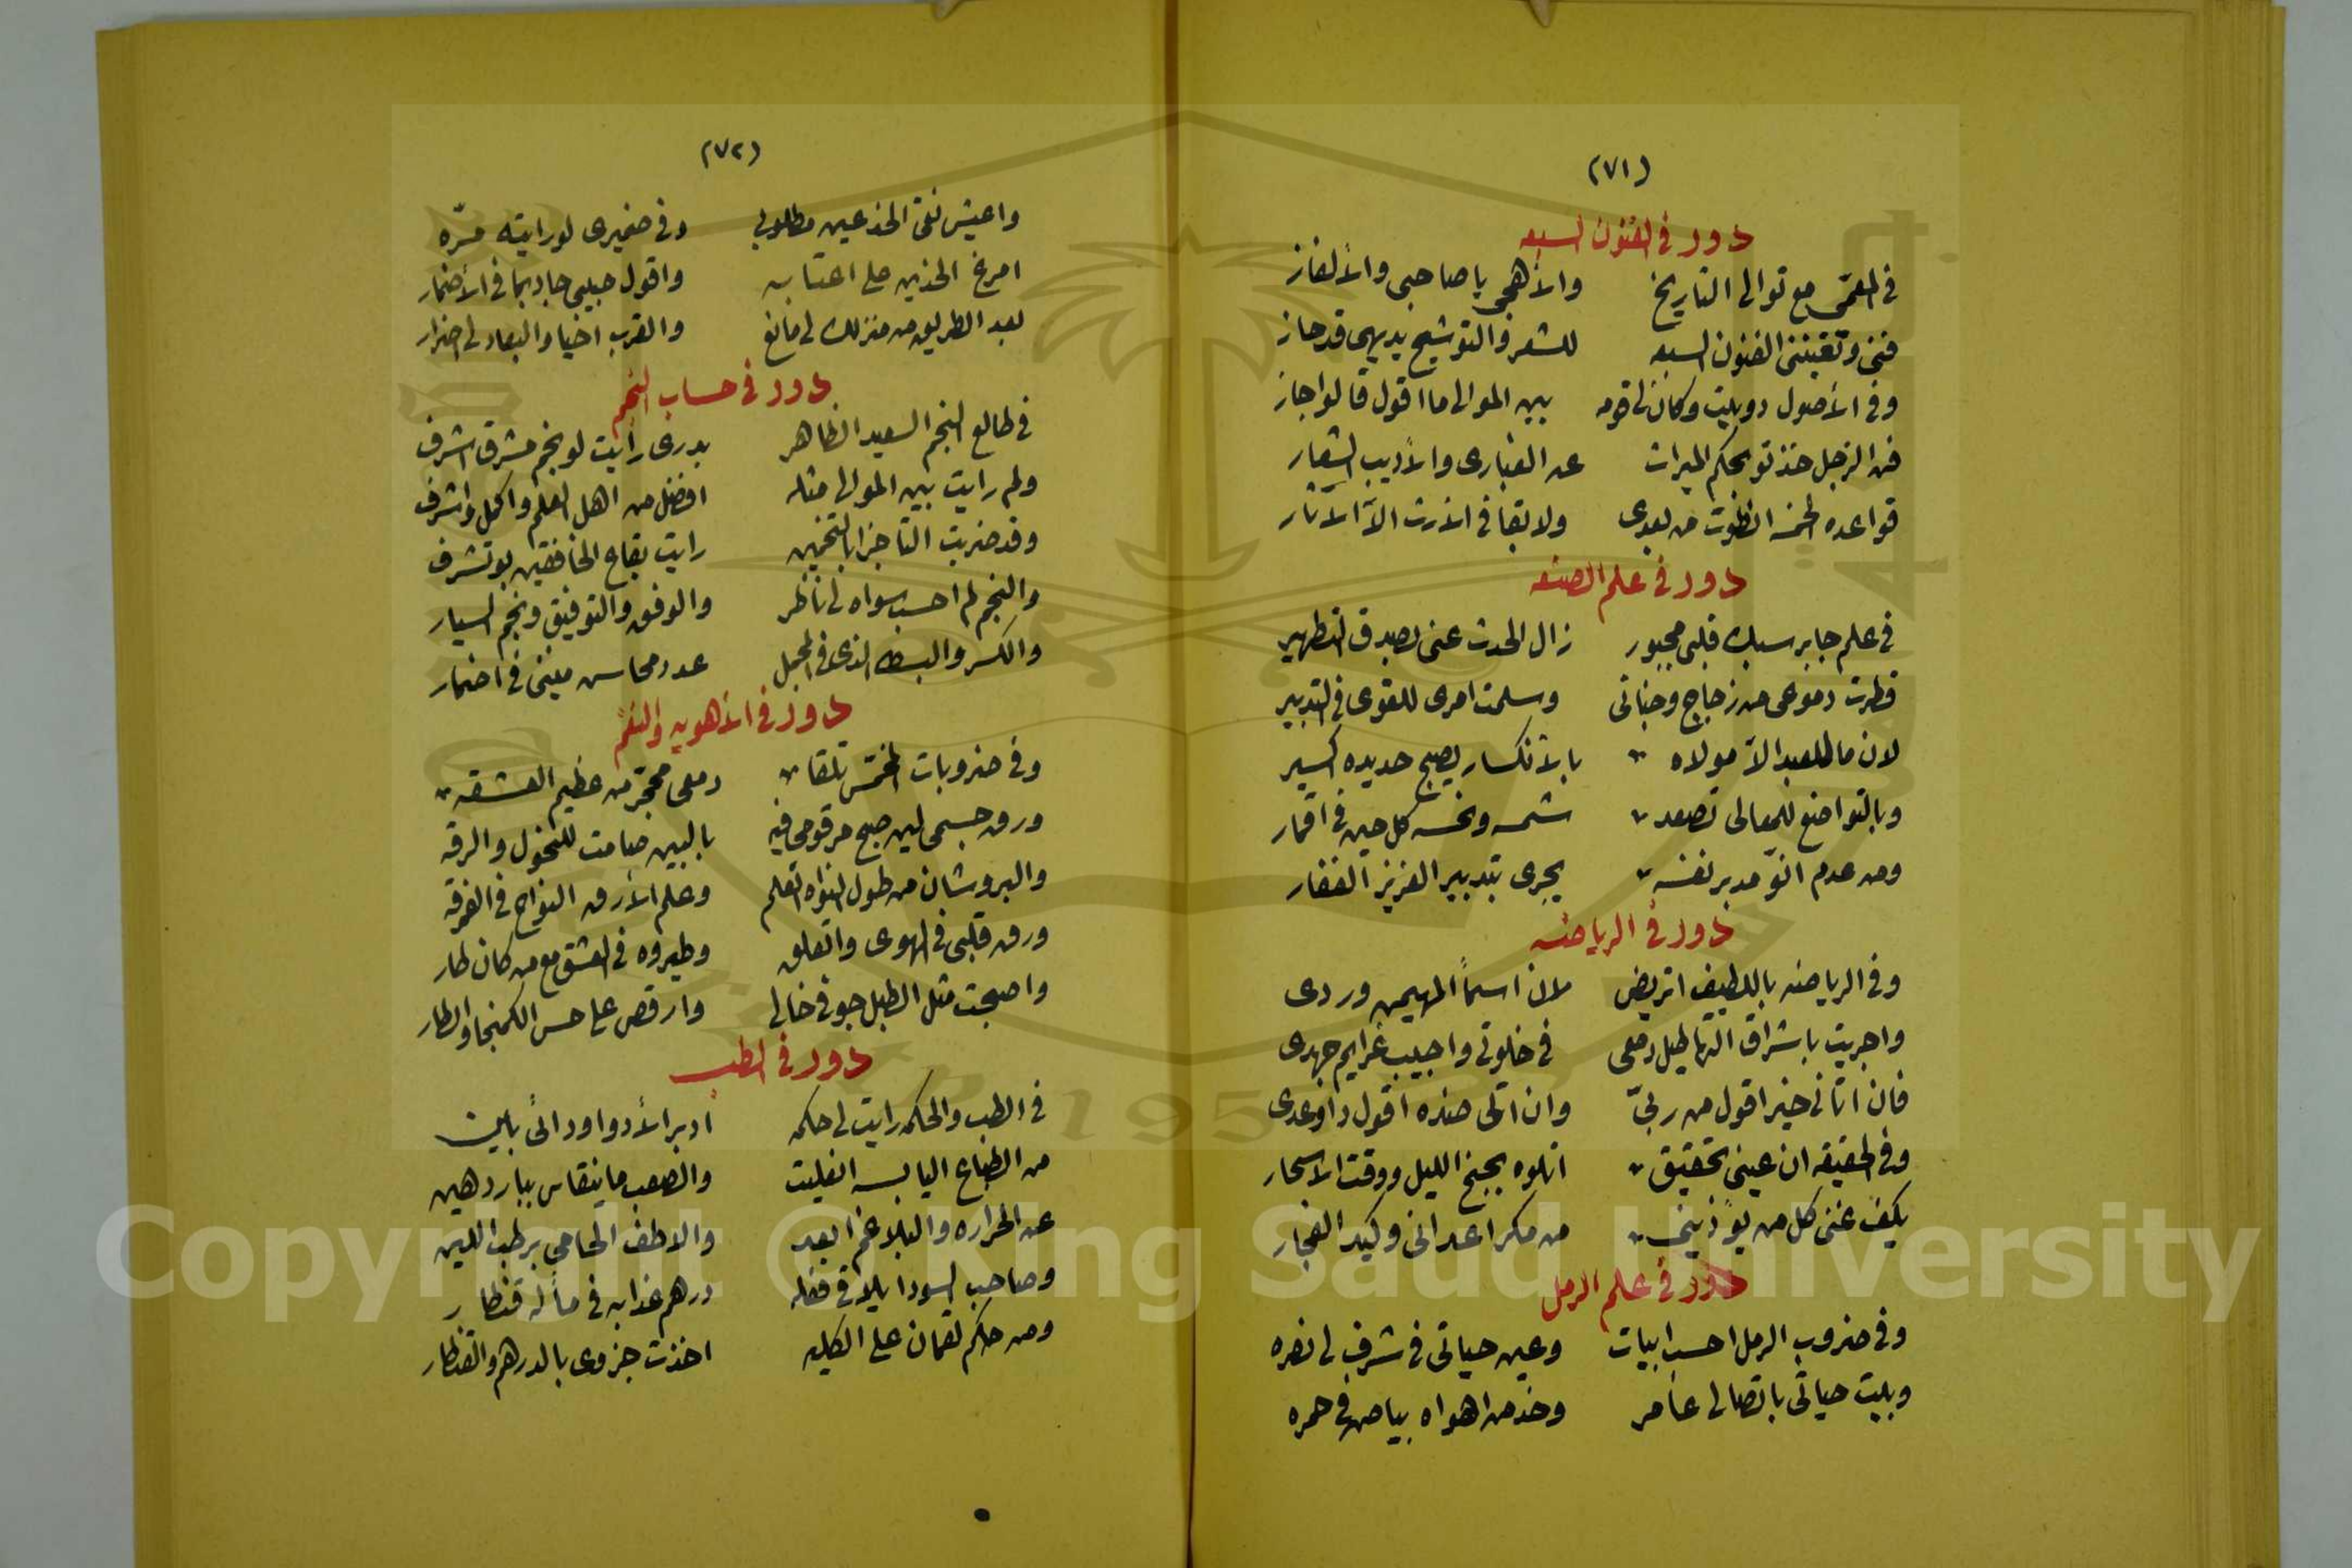 (٧١)
دور في الفنون السبعه
في المعمّى مع توالى التاريخ والأهجى يا صاحبى والألغاز
فنى وتقبننى الفنون السبعه للشعر والتوشيح يديهى قد حاز
وفى الأصول دوبيت وكان لى قومه بين الموالى ما اقول قالوا جاز
فن الزجل خذ تو بحكم الميراث عن الغبارى والأديب الشعار
قواعده الخمسه انطوت من بعدى ولا بقا فى الأرث الاّ الآثار
دور فى علم الصنعه
فى علم جابر سبك قلبى مجبور زال الحدث عنى بصدق التطهير
قطرت دموعى من زجاج وجناتى وسلمت امرى للقوى فى التدبير
لان ما للعبد الاّ مولاه بالأنكسار يصبح حديده اكسير
وبالتواضع للمعالى تصعد شمسه ونحسه كل حين فى اقمار
ومن عدم انوّ مدبر نفسه يجرى بتدبير العزيز الغفار
دور فى الرياضه
وفى الرياضه باللطيف اتريض لان اسماً المهيمن وردى
واجريت باشراق التهاطيل دمعى فى خلوتى واجيب عزايم جهدى
فان اتانى خير اقول من ربىّ وان اتى ضده اقول دا وعدى
وفى الحقيقه ان عينى تحقيق اتلوه بجنح الليل ووقت الاسحار
يكف عنى كل من يؤذينى من مكر اعدائى وكيد الفجار
دور فى علم الرمل
وفى ضروب الرمل احسب ابيات وعين حياتى فى شرف لى نصره
وبيت حياتى باتصالى عامر وخد من اهواه بياض فى حمره
(٧٢)
واعيش نقى الخد عين مطلوبى وفى ضميرى لو رايته مرّه
امرغ الخدين على اعتابه واقول حبيبى جا ديما فى الأضمار
بعد الطريق من منزلك لى مانع والقرب احيا والبعاد لى اضرار
دور فى حساب النجم
فى طالع النجم السعيد الظاهر بدرى رايت لو نجم مشرق اشرف
ولم رايت بين الموالى مثله افضل من اهل العلم واكمل واشرف
وقد ضربت التاجزا بالتخمين رايت بقاع الخافقين بو تشرف
والنجم لم احسب سواه لى ناظر والوفق والتوفيق ونجم السيار
والكسر والبسط الذى فى المجمل عدد محاسن منيتى فى اضمار
دور فى الأهويه والنغم
وفى ضروبات المخمّس تلقا دمعى محجّر من عظيم العشقه
ورق جسمى لين صبح مرقومى فيه بالبين صامت للنحول والرقه
والبروشان من طول النواه اتعلم وعلم الأرق النواح فى الفرقه
ورق قلبى فى الهوى واتعلق وطيروه فى العشق مع من كان طار
واصبحت مثل الطبل جوفى خالى وارقص على حس الكمنجا والطار
دور فى الطب
فى الطب والحكمه رايت لى حكمه ادبر الأدوا ودائى باين
من الطباع اليابسه انفليت والصعب ما ينقاس ببارد هين
عن الحراره والبلاغم ابعد والاطف الحامى برطب اللين
وصاحب السودا يلاقى فعله درهم عذابه فى مأله قنطار
ومن حكم لقمان على الكليه اخذت جزوى بالدرهم والقنطار